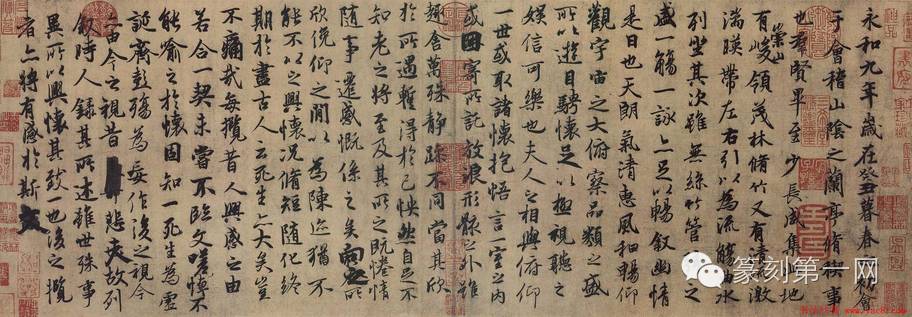 永和九年歲在癸丑暮春之初會
于會稽山陰之蘭亭脩稧事
也羣賢畢至少長咸集此地
有崇山峻領茂林脩竹又有清流激
湍暎帶左右引以為流觴曲水
列坐其次雖無絲竹管弦之
盛一觴一詠亦足以暢敘幽情
是日也天朗氣清惠風和暢仰
觀宇宙之大俯察品類之盛
所以遊目騁懷足以極視聽之
娛信可樂也夫人之相與俯仰
一世或取諸懷抱悟言一室之內
或因寄所託放浪形骸之外雖
趣舍萬殊靜躁不同當其欣
於所遇蹔得於己怏然自足不
知老之將至及其所之既惓情
隨事遷感慨係之矣向之所
欣俛仰之閒以為陳迹猶不
能不以之興懷況脩短隨化終
期於盡古人云死生亦大矣豈
不痛哉每攬昔人興感之由
若合一契未嘗不臨文嗟悼不
能喻之於懷固知一死生為虛
誕齊彭殤為妄作後之視今
亦由今之視昔悲夫故列
敘時人錄其所述雖世殊事
異所以興懷其致一也後之攬
者亦將有感於斯文
篆刻第一网